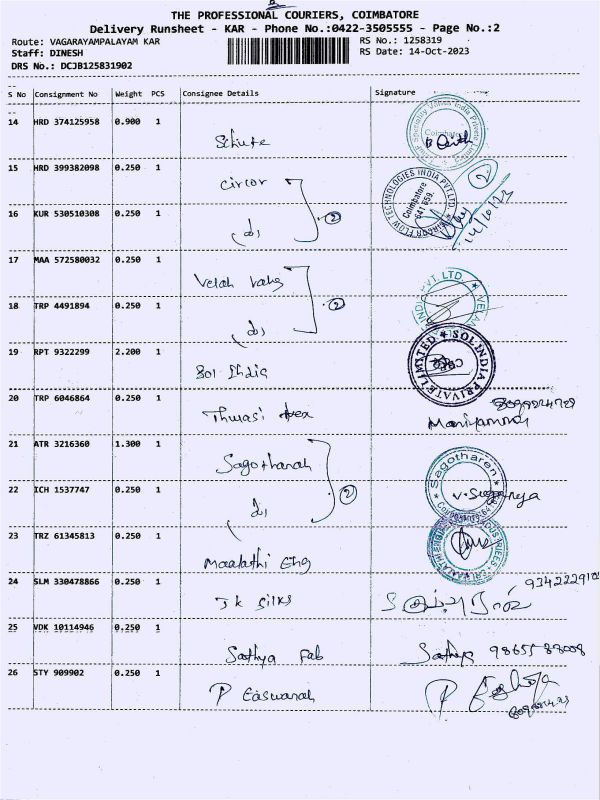 THE PROFESSIONAL COURIERS, COIMBATORE
Delivery Runsheet - KAR - Phone No.:0422-3505555 - Page No.:2
Route: VAGARAYAMPALAYAM KAR RS No.: 1258319
Staff: DINESH RS Date: 14-Oct-2023
DRS No.: DCJB125831902
S No Consignment No Weight PCS Consignee Details Signature
14 HRD 374125958 0.900 1 Schute
15 HRD 399382098 0.250 1 Circor
TECHNOLOGIES INDIA PVT LTD Coimbatore 641 659. 2 14/10/23
16 KUR 530510308 0.250 1 do 2
17 MAA 572580032 0.250 1 Velah
18 TRP 4491894 0.250 1 do 2
19 RPT 9322299 2.200 1 Sol India SOLINDIA PRIVATE LIMITED CBE
20 TRP 6046864 0.250 1 Thulasi
21 ATR 3216360 1.300 1 Sagotharan Sagotharen
22 ICH 1537747 0.250 1 do 2
23 TRZ 61345813 0.250 1 Maalathi Eng
24 SLM 330478866 0.250 1 J K Silks
25 VDK 10114946 0.250 1 Sathya Fab Sathya
26 STY 909902 0.250 1 P Easwaran P